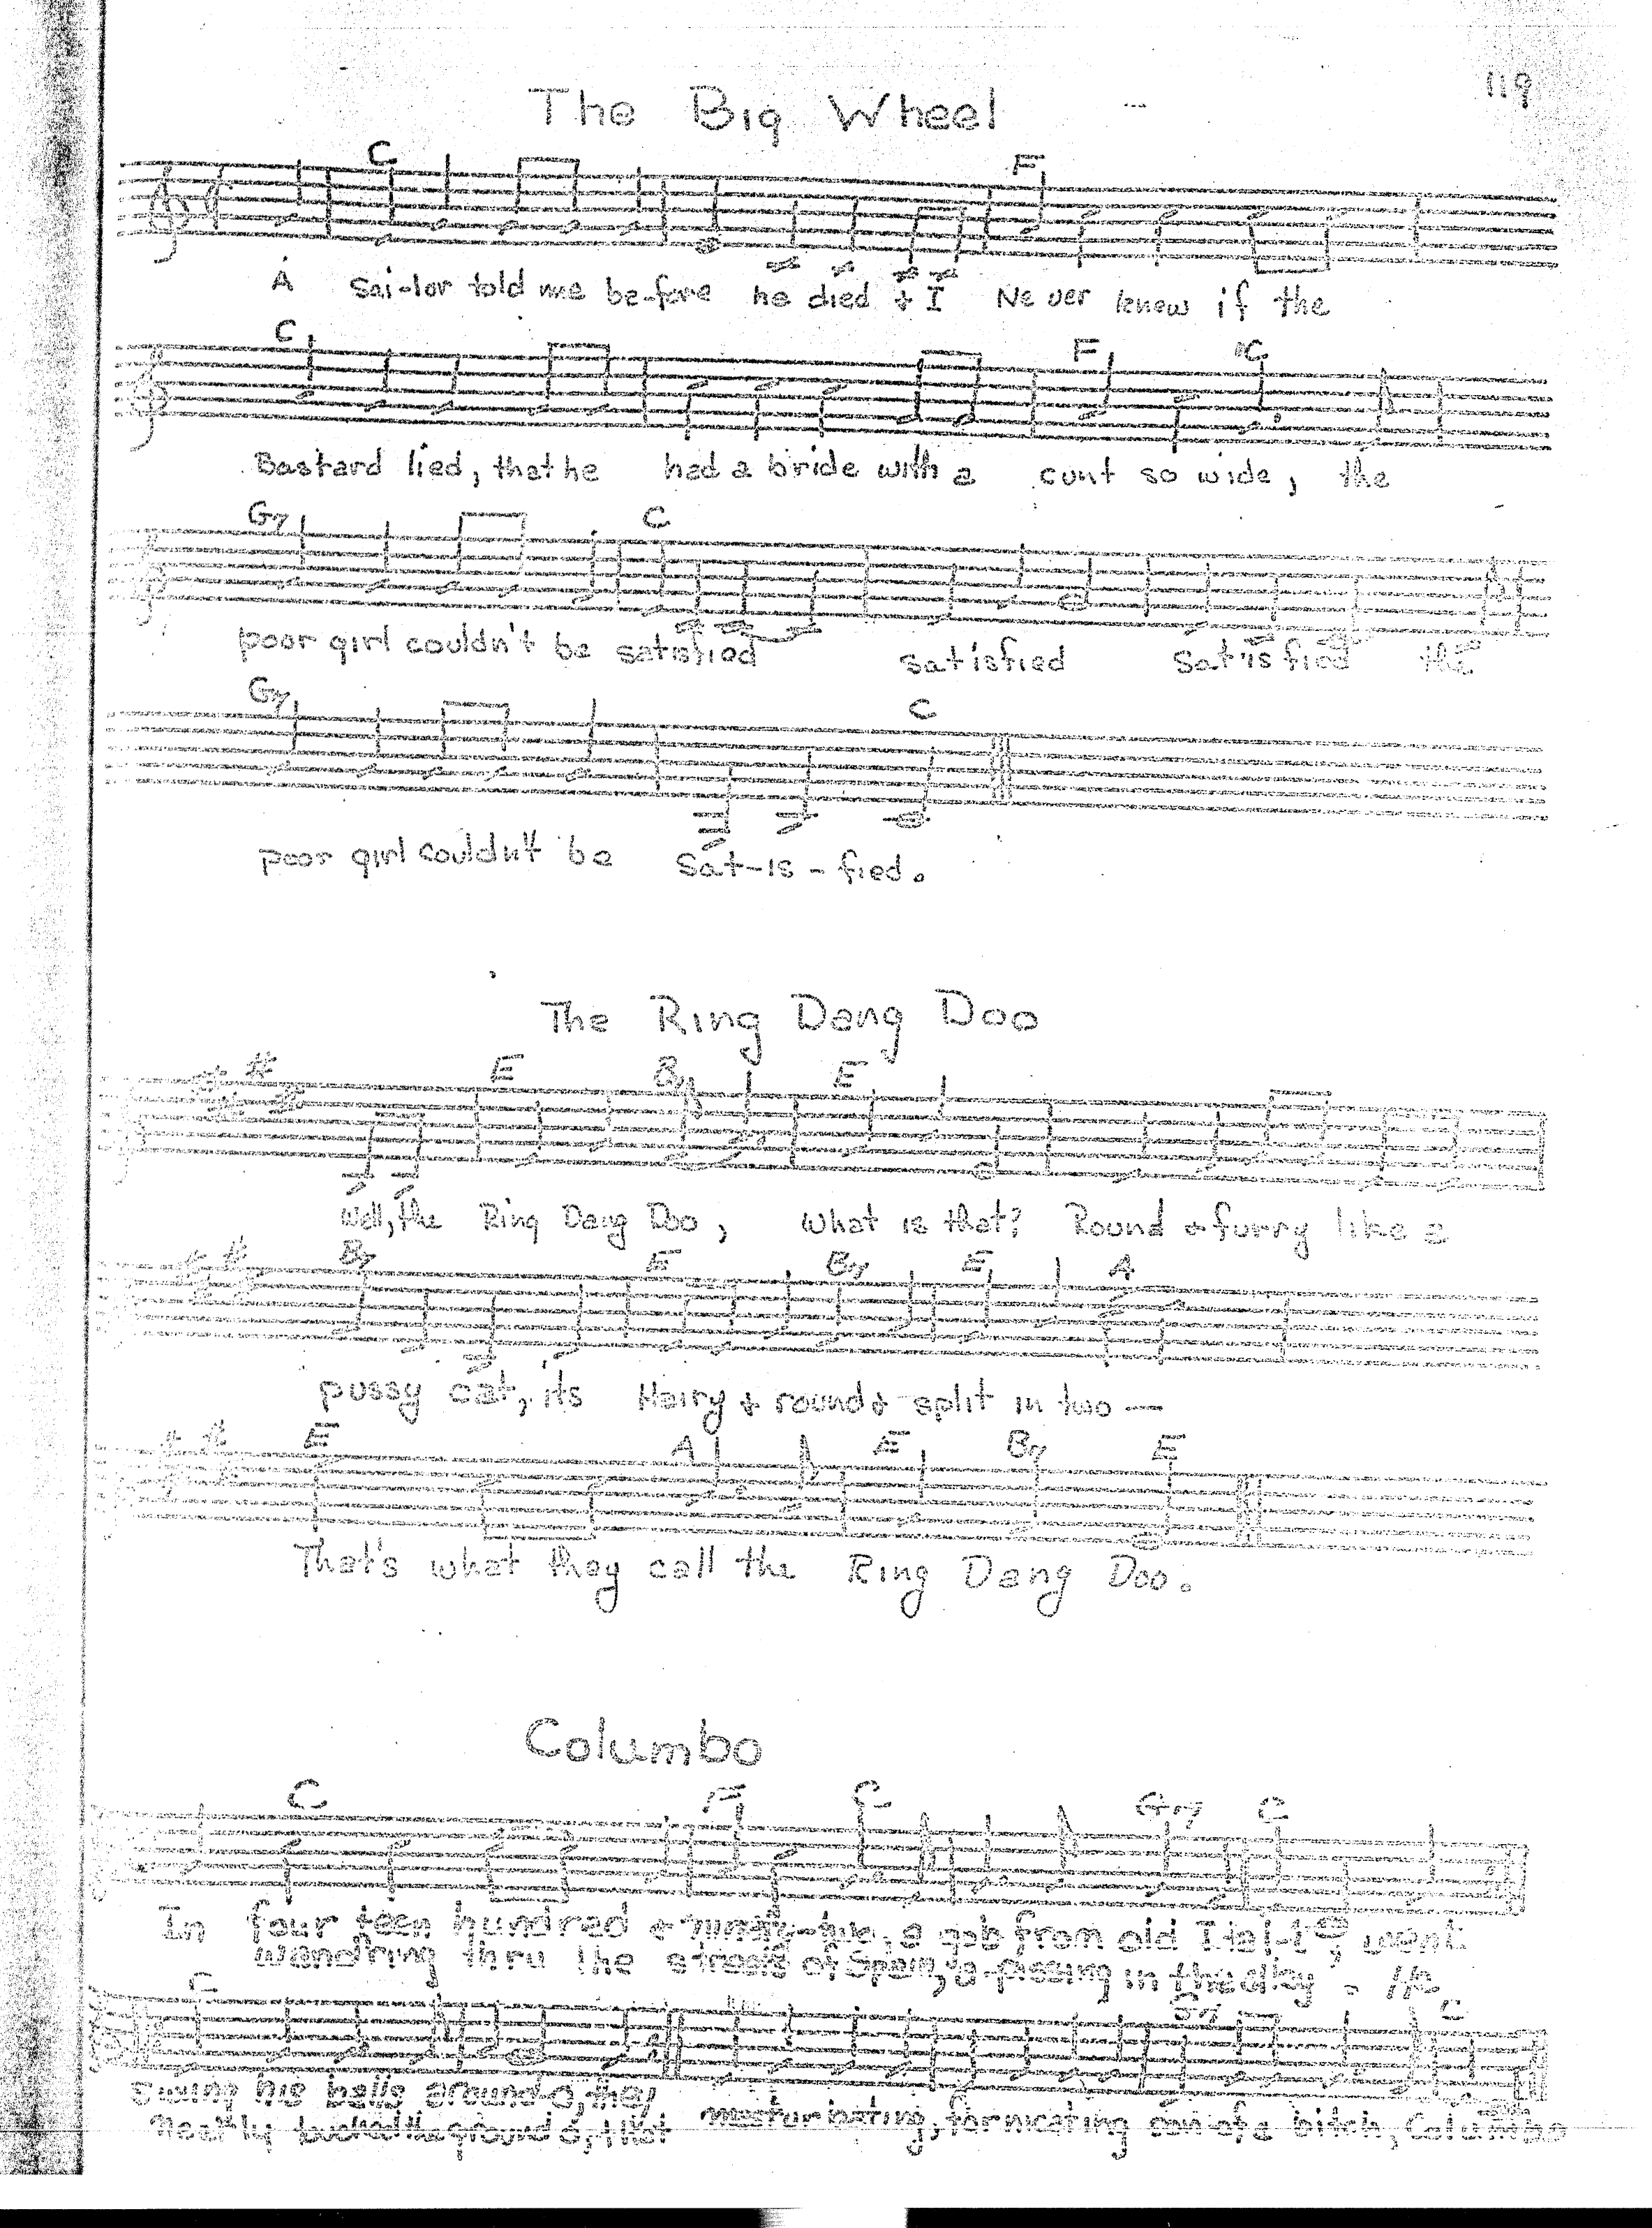 119
The Big Wheel
C F
A Sai-lor told me be-fore he died + I Never knew if the
C F C
Bastard lied, that he had a bride with a cunt so wide, the
G7 C
poor girl couldn't be satisfied satisfied Sat is fied the
G7 C
poor girl couldn't be Sat-is-fied.
The Ring Dang Doo
E B7 E
Well, the Ring Dang Doo, What is that? Round + furry like a
B7 E B7 E A
pussy cat, its Hairy + round + split in two —
E A E B7 E
That's what they call the Ring Dang Doo.
Columbo
C F C G7 C
In four teen hundred + a gob from old Ital- went
wand'ring thru the streets of Spain, a-pissing in the alley
C G7 C
his balls around o, they masturbating, fornicating son of a bitch, Columbo
the ground o, that